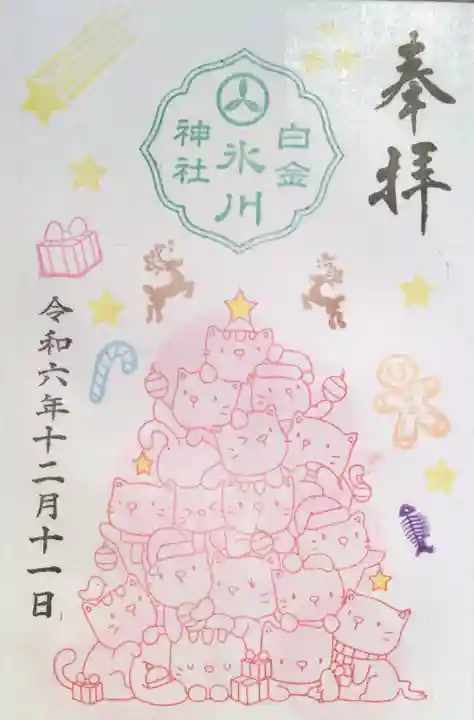 奉拝
白金
氷川
神社
令和六年十二月十一日